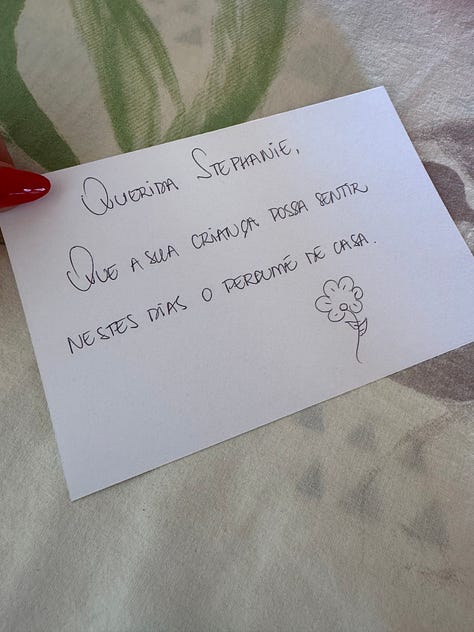 Querida Stephanie,
Que a sua criança possa sentir
nestes dias o perfume de casa.